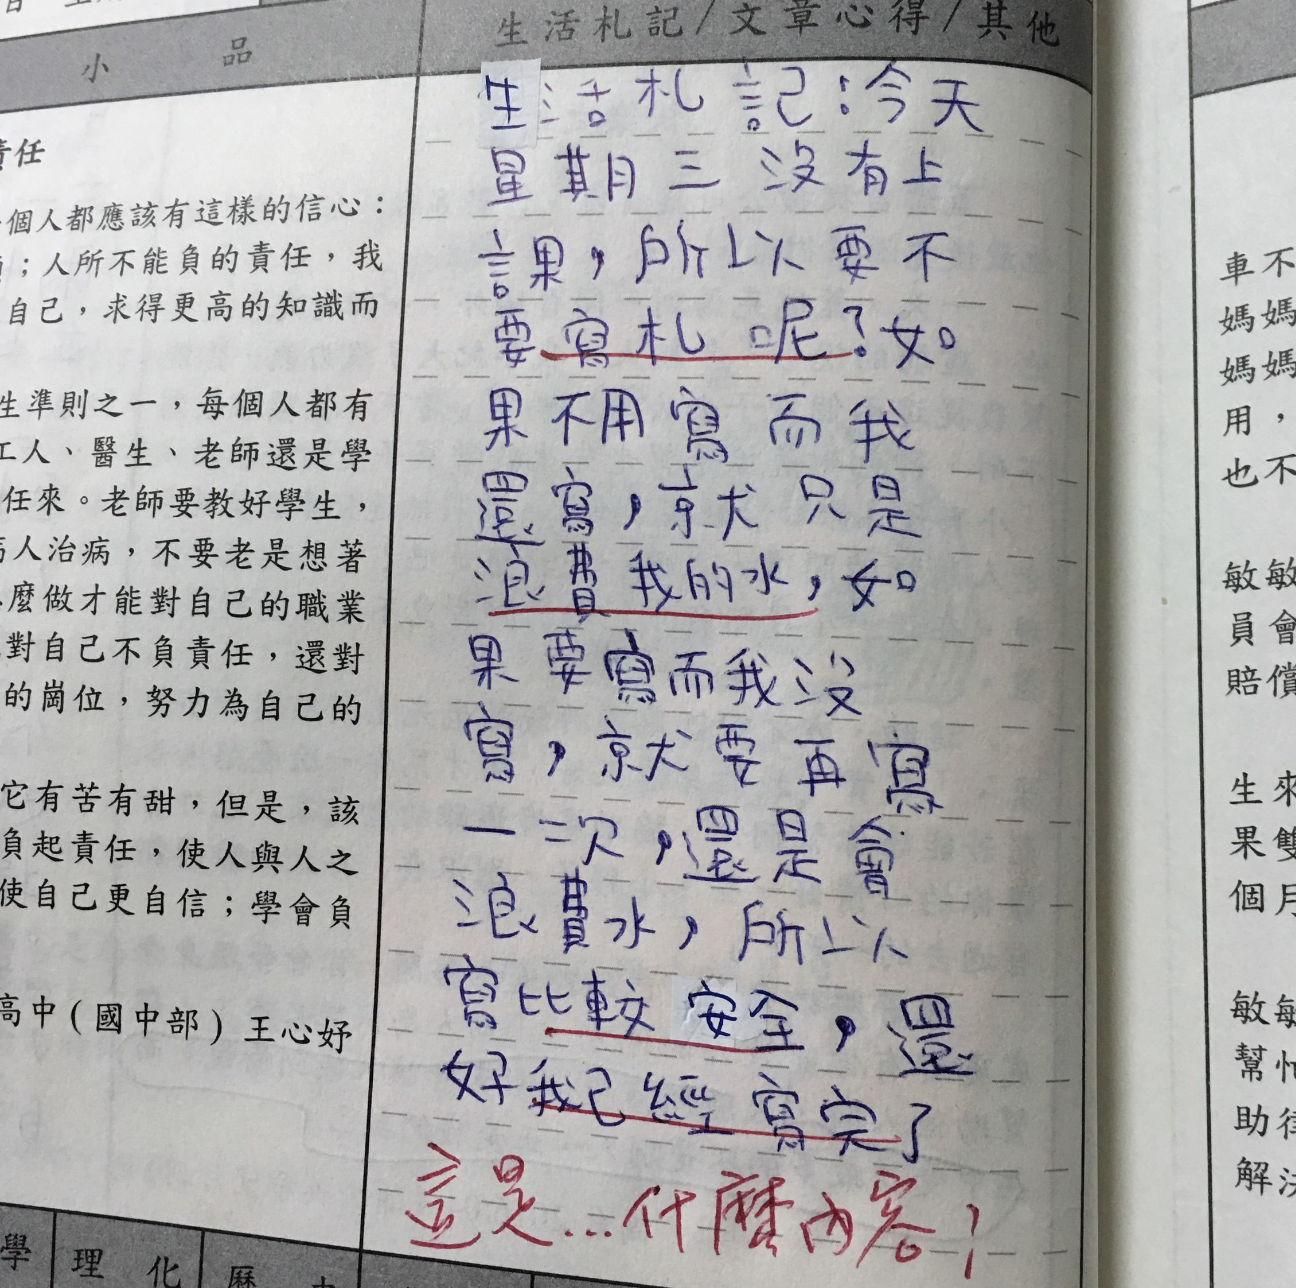 小 品
生活札記/文章心得/其他
責任
個人都應該有這樣的信心：
；人所不能負的責任，我
自己，求得更高的知識而
生準則之一，每個人都有
工人、醫生、老師還是學
任來。老師要教好學生，
人治病，不要老是想著
麼做才能對自己的職業
對自己不負責任，還對
的崗位，努力為自己的
它有苦有甜，但是，該
負起責任，使人與人之
使自己更自信；學會負
高中(國中部) 王心妤
生活札記：今天
星期三沒有上
課，所以要不
要寫札呢？如
果不用寫而我
還寫，就只是
浪費我的水，如
果要寫而我沒
寫，就要再寫
一次，還是會
浪費水，所以
寫比較安全，還
好我已經寫完了
這是...什麼內容！
車不
媽媽
媽媽
用，
也不
敏敏
員會
賠償
生來
果雙
個月
敏敏
幫忙
助律
解決
學 理 化